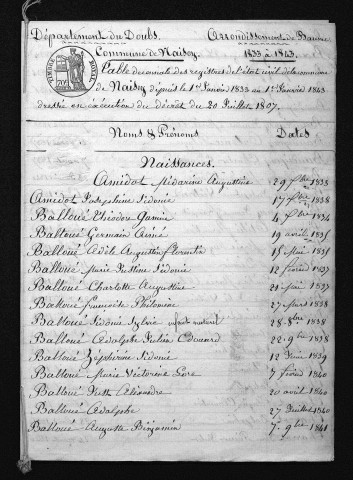 Département du Doubs. Arrondissement de Baume
Commune de Naisey. 1833 à 1843.
TIMBRE ROYAL
Table décennale des registres de l'état civil de la commune
de Naisey depuis le 1er Janvier 1833 au 1er Janvier 1843
dressée en exécution du décret du 20 Juillet 1807.
Noms & Prénoms Dates
Naissances.
Amidot Augustine 29 1835
Amidot Josephine Sidonie 17 1838
Balloué Théodore 4 1834
Balloué Germain Aimé 19 avril 1835
Balloué Adèle Augustin Florentin 15 Mai 1835
Balloué Marie Justine Sidonie 12 février 1837
Balloué Charlotte Augustine 21 Mai 1837
Balloué Françoise Philomène 27 Mars 1838
Balloué Sidonie Sylvie enfant naturel 28 8bre 1838
Balloué Adolphe Julien Edouard 22 9bre 1838
Balloué Zéphirine Sidonie 12 Juin 1839
Balloué Marie Victorine 7 février 1840
Balloué Juste Alexandre 20 avril 1840
Balloué Adolphe 27 Juillet 1840
Balloué Auguste Benjamin 7 9bre 1841